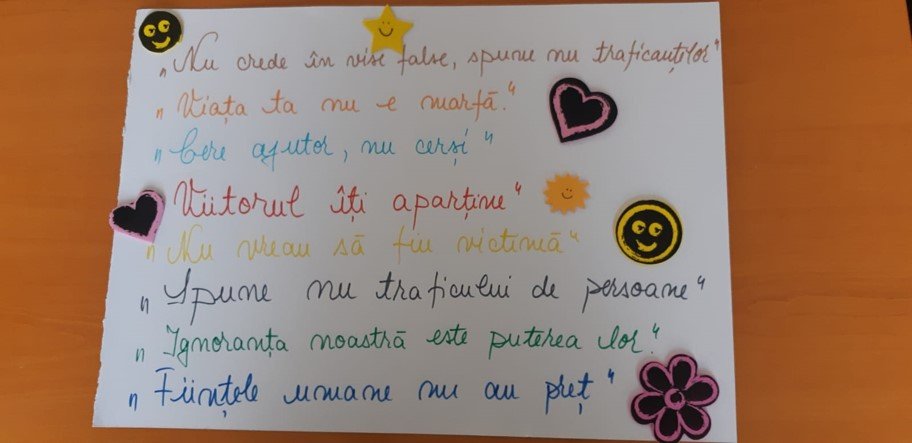 „Nu crede în vise false, spune nu traficanților"
„Viața ta nu e marfă."
„Cere ajutor, nu cerși"
Viitorul îți aparține"
„Nu vreau să fiu victimă"
„Spune nu traficului de persoane"
„Ignoranța noastră este puterea lor."
„Ființele umane nu au preț"